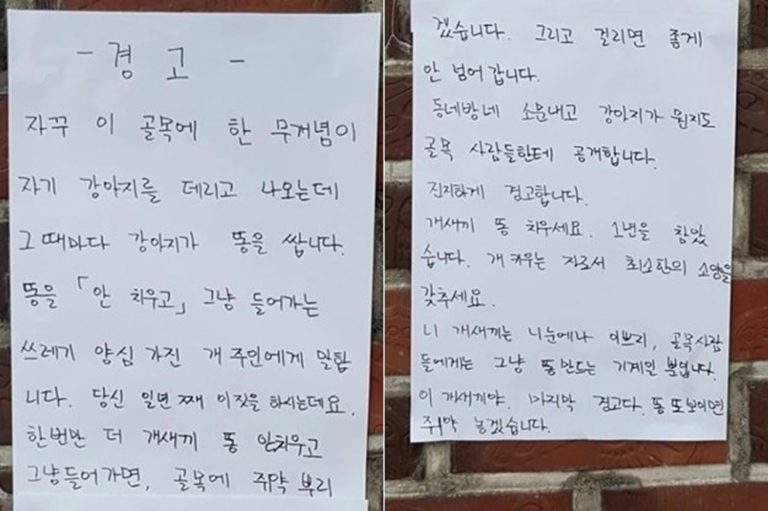 - 경 고 -
자꾸 이 골목에 한 무개념이
자기 강아지를 데리고 나오는데
그때마다 강아지가 똥을 쌉니다.
똥을 「안 치우고」 그냥 들어가는
쓰레기 양심 가진 개 주인에게 말합
니다. 당신 일년 째 이짓을 하시는데요.
한번만 더 개새끼 똥 안치우고
그냥들어가면, 골목에 쥐약 뿌리
겠습니다. 그리고 걸리면 좋게
안 넘어갑니다.
동네방네 소문내고 강아지가 뭔지도
골목 사람들한테 공개합니다.
진지하게 경고합니다.
개새끼 똥 치우세요. 1년을 참았
습니다. 개 키우는 자로서 최소한의 소양을
갖추세요.
니 개새끼는 니눈에나 이쁘지, 골목사람
들에게는 그냥 똥만드는 기계일 뿐입니다.
이 개새끼야. 마지막 경고다. 똥 또보이면
쥐약 놓겠습니다.